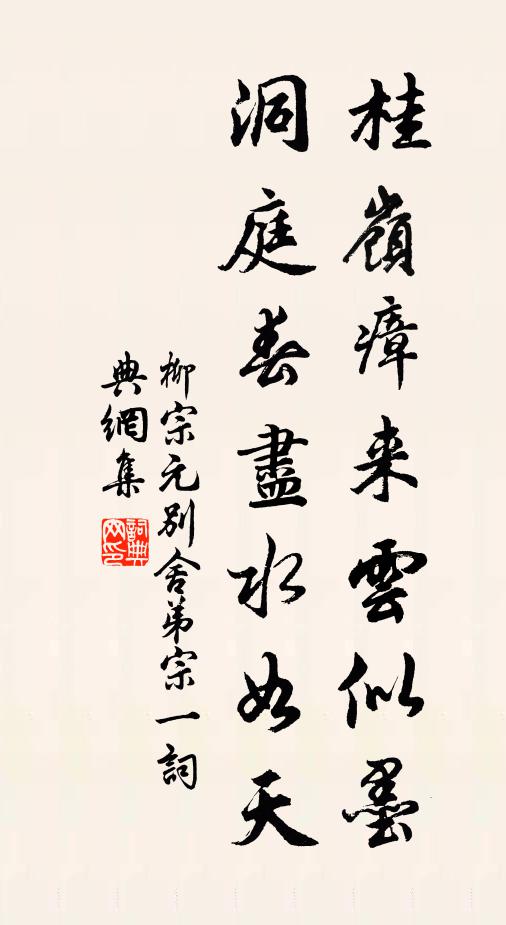 桂嶺瘴来雲似墨
洞庭春盡水如天
柳宗元别舍弟宗一詞
典網集
詞典
网印